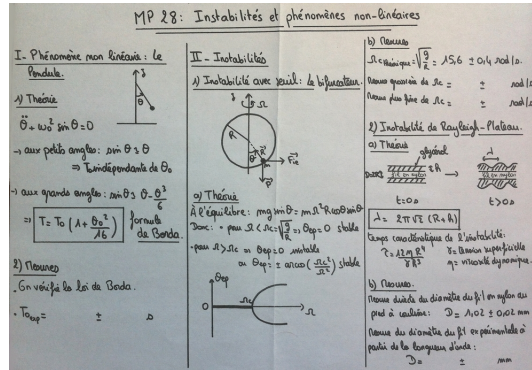 MP 28: Instabilités et phénomènes non-linéaires
I - Phénomène non linéaire: le
Pendule.
1) Théorie
θ
θ̈ + ω₀² sin θ = 0
→ aux petits angles: sin θ ≈ θ
⇒ T₀ indépendante de θ₀
→ aux grands angles: sin θ ≈ θ - θ³/6
⇒ T = T₀ (1 + θ₀²/16) formule de Borda.
2) Mesures
• On vérifie la loi de Borda.
• T₀exp = ± s
II - Instabilités
1) Instabilité avec seuil: le bifurcateur.
z Ω
R
θ
R
m
Fie
P
a) Théorie
À l'équilibre: mg sin θ = mΩ² R cos θ sin θ
Donc: • pour Ω < Ωc = √(g/R) ⇒ θép = 0 stable
• pour Ω > Ωc ⇒ θép = 0 instable
ou θép = ± arcos (Ωc²/Ω²) stable
θép
0 Ωc Ω
b) Mesures
Ωc théorique = √(g/R) = 15,6 ± 0,4 rad/s.
Mesure grossière de Ωc = ± rad/s
Mesure plus fine de Ωc = ± rad/s
2) Instabilité de Rayleigh-Plateau.
a) Théorie
glycérol
λ
fil en nylon
2h
t=0s t>0s
λ = 2π√2 (R+h)
temps caractéristique de l'instabilité:
γ = tension superficielle
η = viscosité dynamique.
b) Mesures.
Mesure directe du diamètre du fil en nylon au
pied à coulisse: D = 1,02 ± 0,02 mm
Mesure du diamètre du fil expérimentale à
partir de la longueur d'onde:
D = ± mm